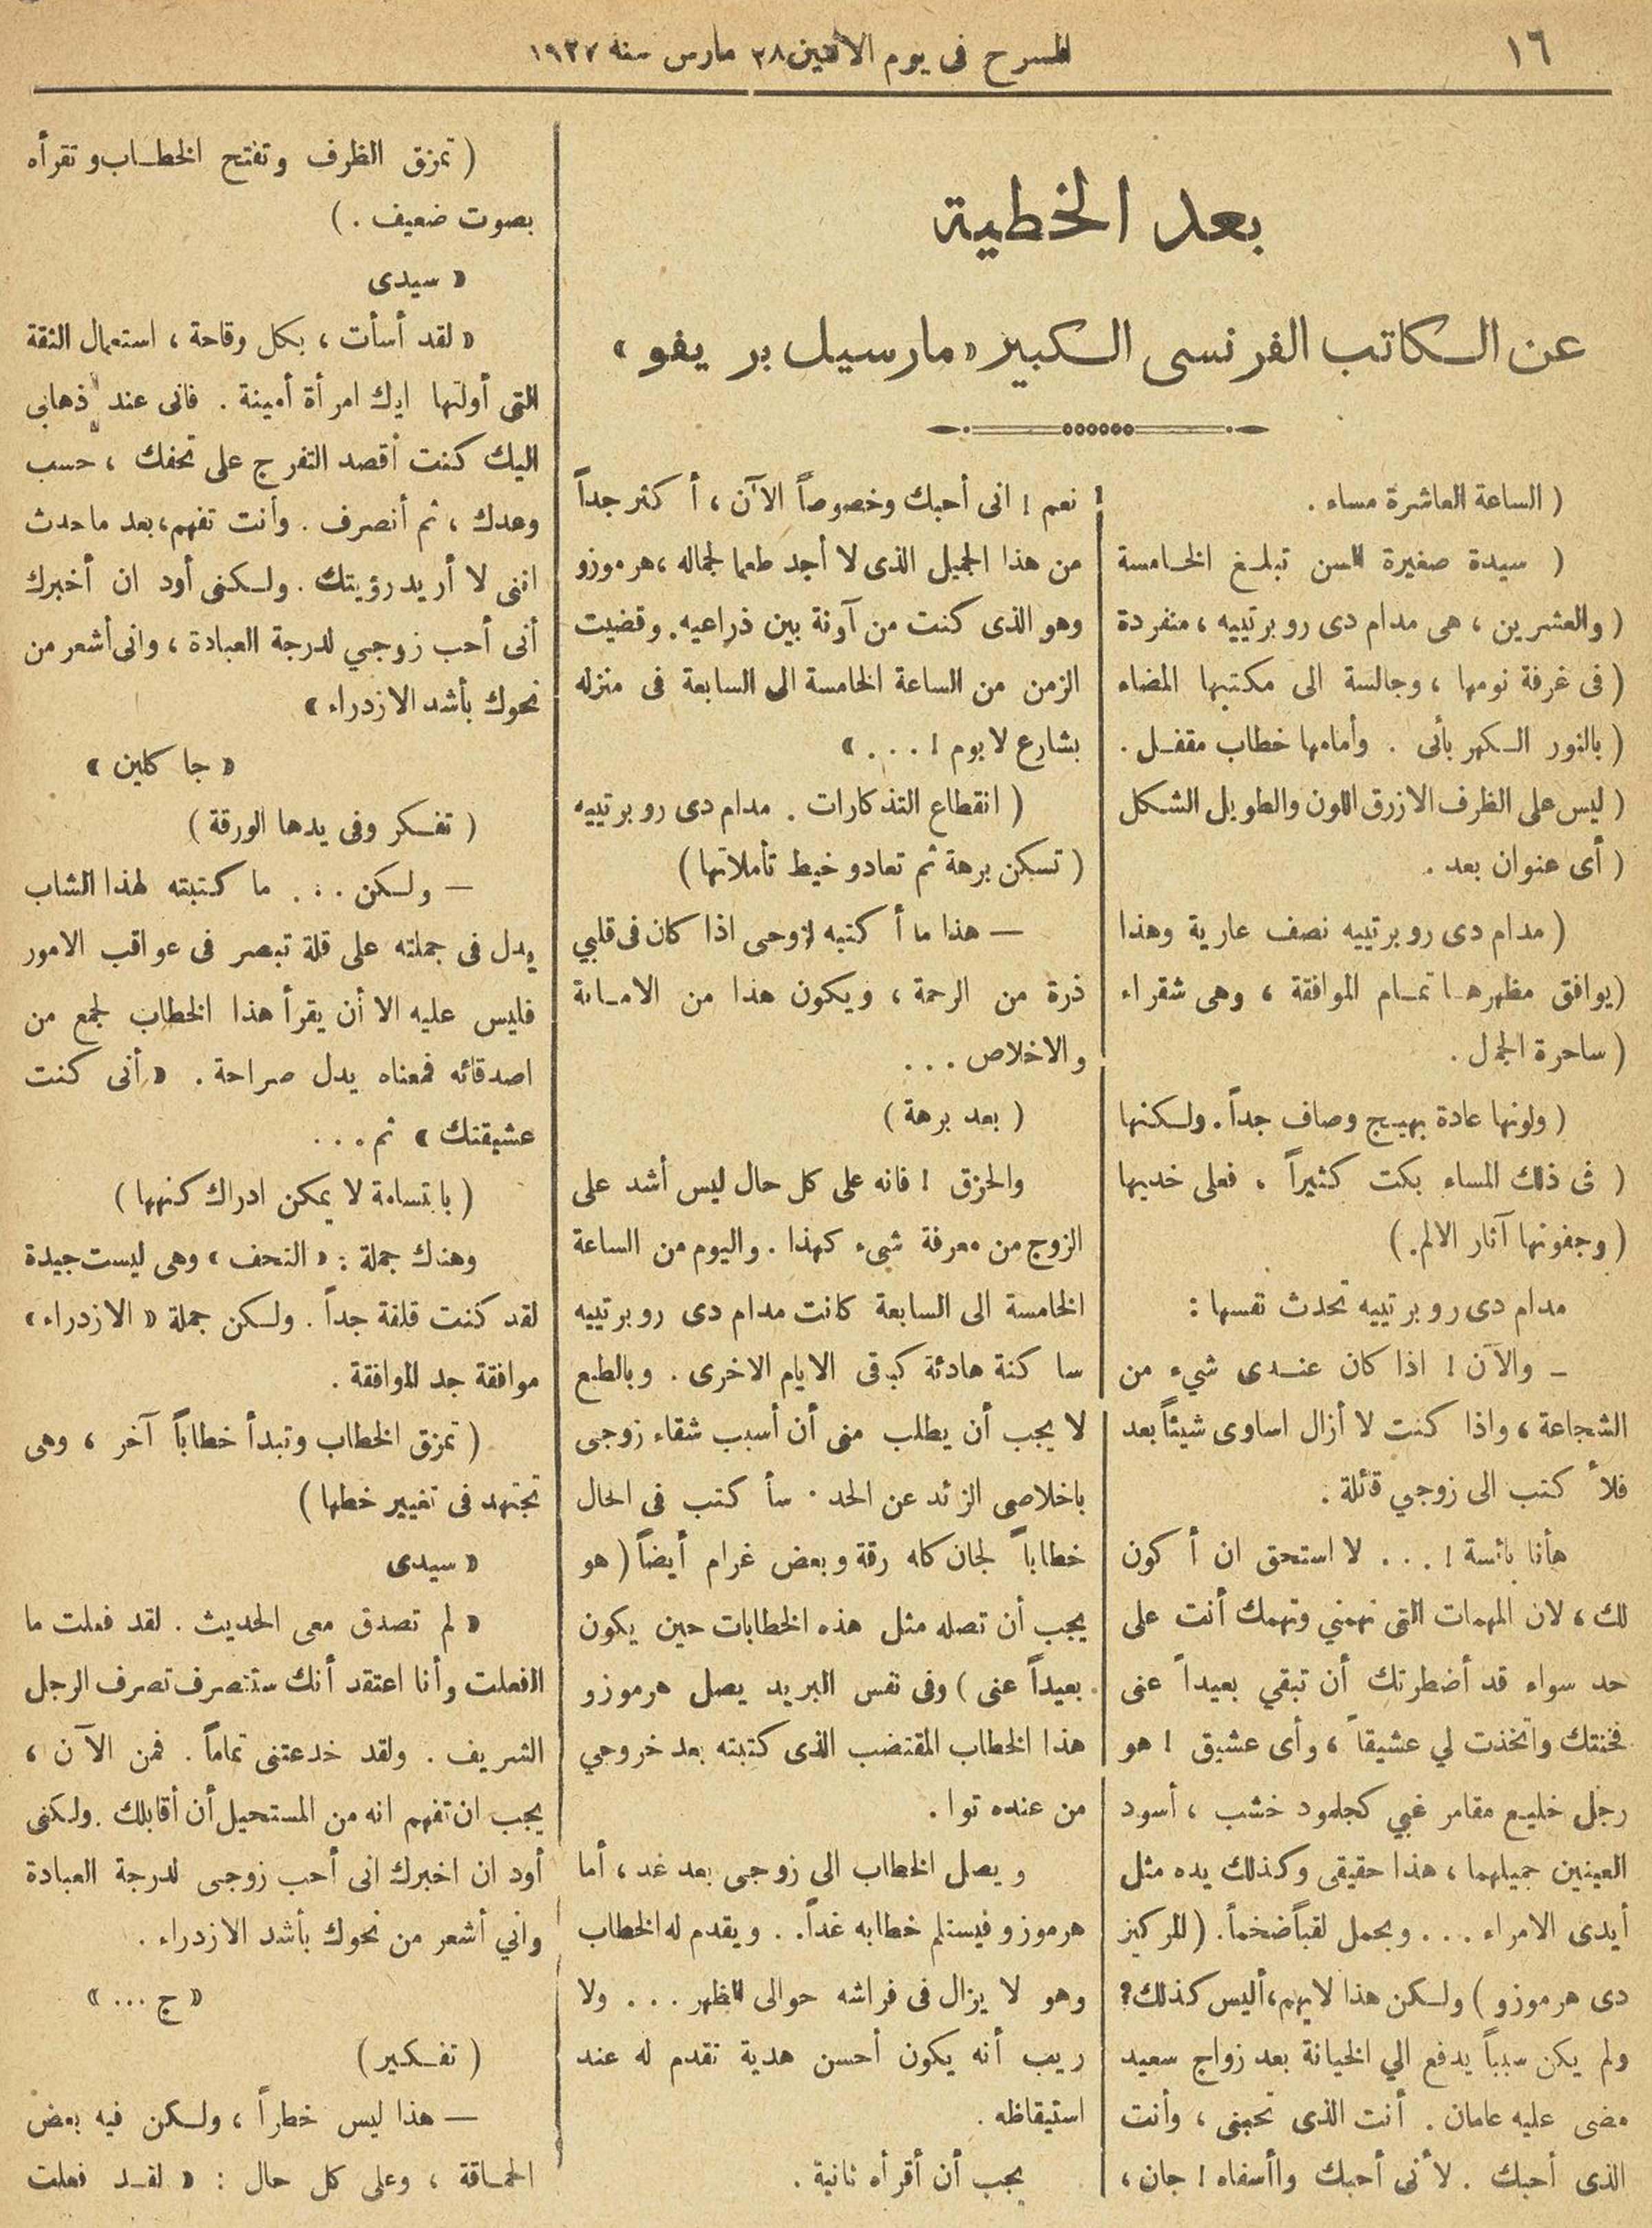 ١٦
المسرح فى يوم الاثنين ٢٨ مارس سنة ١٩٢٧
بعد الخطية
عن الكاتب الفرنسى الكبير «مارسيل بر يفو»
( الساعة العاشرة مساء .
( سيدة صغيرة السن تبلغ الخامسة
( والعشرين ، هى مدام دى روبرتييه ، منفردة
( فى غرفة نومها ، وجالسة الى مكتبها المضاء
( بالنور الكهربأئى . وأمامها خطاب مقفل .
( ليس على الظرف الازرق اللون والطويل الشكل
( أى عنوان بعد .
( مدام دى روبرتييه نصف عارية وهذا
( يوافق مظهرها تمام الموافقة ، وهى شقراء
( ساحرة الجمال .
( ولونها عادة بهيج وصاف جداً . ولكنها
( فى ذلك المساء بكت كثيراً ، فعلى خديها
( وجفونها آثار الالم . )
مدام دى روبرتييه تحدث نفسها :
ـ والآن ! اذا كان عندى شيء من
الشجاعة ، واذا كنت لا أزال اساوى شيئاً بعد
فلأ كتب الى زوجي قائلة .
هأنا بائسة ! . . . لا استحق ان أ كون
لك ، لان المهمات التى تهمني وتهمك أنت على
حد سواء قد أضطرتك أن تبقي بعيداً عنى
فخنتك واتخذت لي عشيقاً ، وأى عشيق ! هو
رجل خليع مقامر غبي كجلمود خشب ، أسود
العينين جميلهما ، هذا حقيقى وكذلك يده مثل
أيدى الامراء . . . ويحمل لقباً ضخماً . ( المركيز
دى هرموزو ) ولكن هذا لايهم ، أليس كذلك ؟
ولم يكن سبباً يدفع الي الخيانة بعد زواج سعيد
مضى عليه عامان . أنت الذى تحبنى ، وأنت
الذى أحبك . لأنى أحبك واأسفاه ! جان ،
نعم ! انى أحبك وخصوصاً الآن ، أ كثر جداً
من هذا الجميل الذى لا أجد طعما لجماله ، هرموزو
وهو الذى كنت من آونة بين ذراعيه . وقضيت
الزمن من الساعة الخامسة الى السابعة فى منزله
بشارع لابوم ! . . . »
( انقطاع التذكارات . مدام دى روبرتييه
( تسكن برهة ثم تعاود خيط تأملاتها )
— هذا ما أ كتبه لزوجى اذا كان فى قلبي
ذرة من الرحمة ، ويكون هذا من الامانة
والاخلاص . . .
( بعد برهة )
والحزق ! فانه على كل حال ليس أشد على
الزوج من معرفة شىء كهذا . واليوم من الساعة
الخامسة الى السابعة كانت مدام دى روبرتييه
سا كنة هادئة كباقى الايام الاخرى . وبالطبع
لا يجب أن يطلب منى أن أسبب شقاء زوجى
باخلاصى الزائد عن الحد . سأ كتب فى الحال
خطاباً لجان كله رقة وبعض غرام أيضاً ( هو
يجب أن تصله مثل هذه الخطابات حين يكون
بعيداً عنى ) وفى نفس البريد يصل هرموزو
هذا الخطاب المقتضب الذى كتبته بعد خروجي
من عنده توا .
ويصل الخطاب الى زوجى بعد غد ، أما
هرموزو فيستلم خطابه غداً . . ويقدم له الخطاب
وهو لا يزال فى فراشه حوالى الظهر . . . ولا
ريب أنه يكون أحسن هدية تقدم له عند
استيقاظه .
يجب أن أقرأه ثانية .
( تمزق الظرف وتفتح الخطاب و تقرأه
بصوت ضعيف . )
« سيدى
« لقد أسأت ، بكل وقاحة ، استعمال الثقة
التى أولتها اياك امرأة أمينة . فانى عند ذهابى
اليك كنت أقصد التفرج على تحفك ، حسب
وعدك ، ثم أنصرف . وأنت تفهم ، بعد ما حدث
اننى لا أريد رؤيتك . ولكنى أود ان أخبرك
أنى أحب زوجي لدرجة العبادة ، وانى أشعر من
نحوك بأشد الازدراء »
« جا كلين »
( تفكر وفى يدها الورقة )
— ولكن . . . ما كتبته لهذا الشاب
يدل فى جملته على قلة تبصر فى عواقب الامور
فليس عليه الا أن يقرأ هذا الخطاب لجمع من
اصدقائه فمعناه يدل صراحة . « أنى كنت
عشيقتك » ثم . . .
( بابتسامة لا يمكن ادراك كنهها )
وهناك جملة : « التحف » وهى ليست جيدة
لقد كنت قلقة جداً . ولكن جملة « الازدراء »
موافقة جد الموافقة .
( تمزق الخطاب وتبدأ خطاباً آخر ، وهى
تجتهد فى تغيير خطها )
« سيدى
« لم تصدق معى الحديث . لقد فعلت ما
الفعلت وأنا اعتقد أنك ستتصرف تصرف الرجل
الشريف . ولقد خدعتنى تماماً . فمن الآن ،
يجب ان تفهم انه من المستحيل أن أقابلك . ولكنى
أود ان اخبرك انى أحب زوجى لدرجة العبادة
واني أشعر من نحوك بأشد الازدراء .
« ج ... »
( تفكير )
— هذا ليس خطراً ، ولكن فيه بعض
الحماقة ، وعلى كل حال : « لقد فعلت